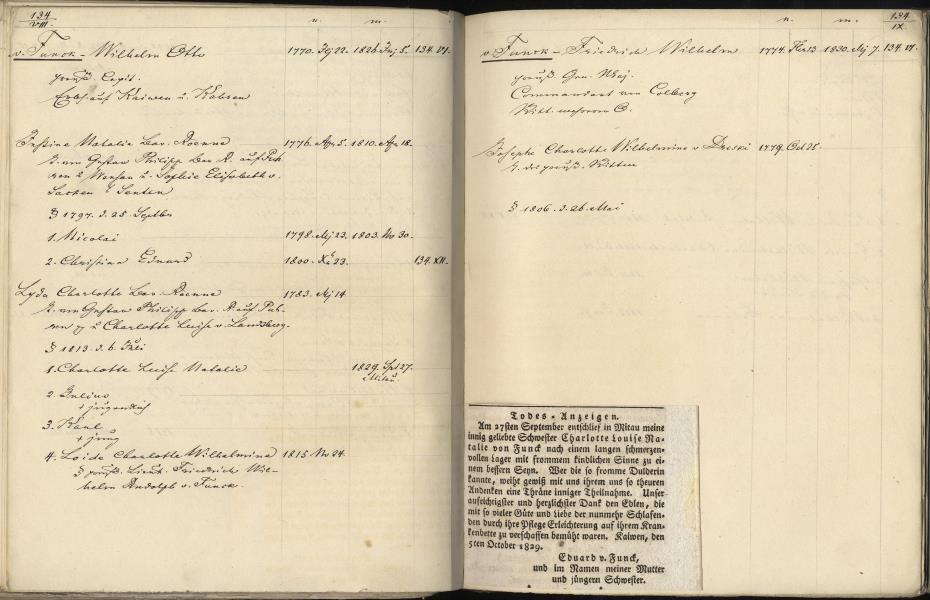 134
VIII.
n. m.
v. Funck - Wilhelm Otto 1770. Jaj 22. 1826 Jnj 5. 134. VI.
preuß. Capit.
Erbh. auf Kaiwen u. Kabsen
Justine Natalie Bar. Roenne 1776. Apr 5. 1810. Apr 18.
T. von Gustav Philipp Bar R. auf Puh
ren u Wensau u. Sophie Elisabeth v.
Sacken a Senten
§ 1797. d. 25. Septbr
1. Nicolai 1798. Mj 23. 1803. No 30.
2. Christian Eduard 1800. Xb 23. 134. XII.
Lyda Charlotte Bar. Roenne 1783. Mj 14
T. von Gustav Philipp Bar. R. auf Puh-
ren pp u Charlotte Luise v. Landsberg.
§ 1813. d. 6. Juli
1. Charlotte Luise Natalie 1829. Spt 27.
Mitau.
2. Julius
+ jugendlich
3. Karl
+ jung
4. Loide Charlotte Wilhelmine 1815 Nv 24.
§ preuß. Lieut. Friedrich Wil-
helm Rudolph v. Funck.
n. m. 134
IX.
v. Funck - Friedrich Wilhelm 1774. 13 1830. Mj 7. 134. VI.
preuß. Gen. Maj.
Commandant von Colberg
Ritt. mehrerer O.
Josephe Charlotte Wilhelmine v Dreski 1779. Oct 25
T. des preuß. Rittm
§ 1806. d. 26. Mai
Todes-Anzeigen.
Am 27sten September entschlief in Mitau meine
innig geliebte Schwester Charlotte Louise Na-
talie von Funck nach einem langen schmerzen-
vollen Lager mit frommem kindlichen Sinne zu ei-
nem bessern Seyn. Wer die so fromme Dulderin
kannte, weiht gewiß mit uns ihrem uns so theuren
Andenken eine Thräne inniger Theilnahme. Unser
aufrichtigster und herzlichster Dank den Edlen, die
mit so vieler Güte und Liebe der nunmehr Schlafen-
den durch ihre Pflege Erleichterung auf ihrem Kran-
kenbette zu verschaffen bemüht waren. Kaiwen, den
5ten October 1829.
Eduard v. Funck,
und im Namen meiner Mutter
und jüngern Schwester.